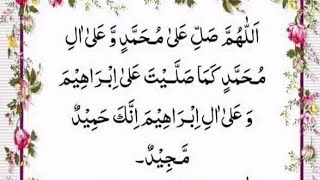 اَللّٰهُمَّ صَلِّ عَلٰى مُحَمَّدٍ وَّ عَلٰى اٰلِ
مُحَمَّدٍ كَمَا صَلَّيْتَ عَلٰى اِبْرَاهِيْمَ
وَ عَلٰى اٰلِ اِبْرَاهِيْمَ اِنَّكَ حَمِيْدٌ
مَّجِيْدٌ۔